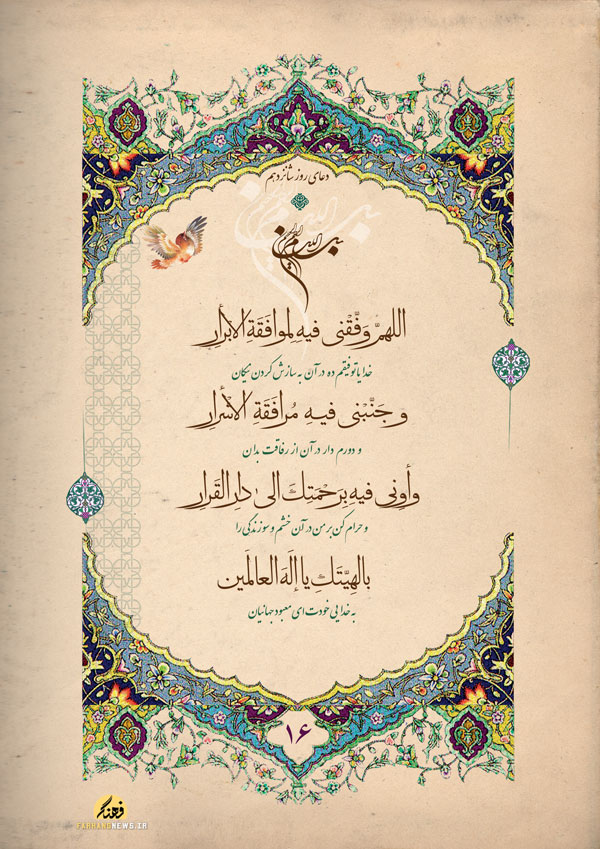 دعای روز شانزدهم
بسم الله الرحمن الرحیم
اللهمَّ وَفِّقْنی فیهِ لِموافَقَةِ الأبْرارِ
خدایا توفیقم ده در آن به سازش کردن نیکان
وجَنِّبْنی فیهِ مُرافَقَةِ الأشْرارِ
و دورم دار در آن از رفاقت بدان
وأوِنی فیه بِرَحْمَتِكَ الی دارِ القَرارِ
و حرام کن بر من در آن خشم و سوزندگی را
بالهِیّتَكِ یا إلَهَ العالَمین
به خدایی خودت ای معبود جهانیان
۱۶
فرهنگ
FARHANGNEWS.IR